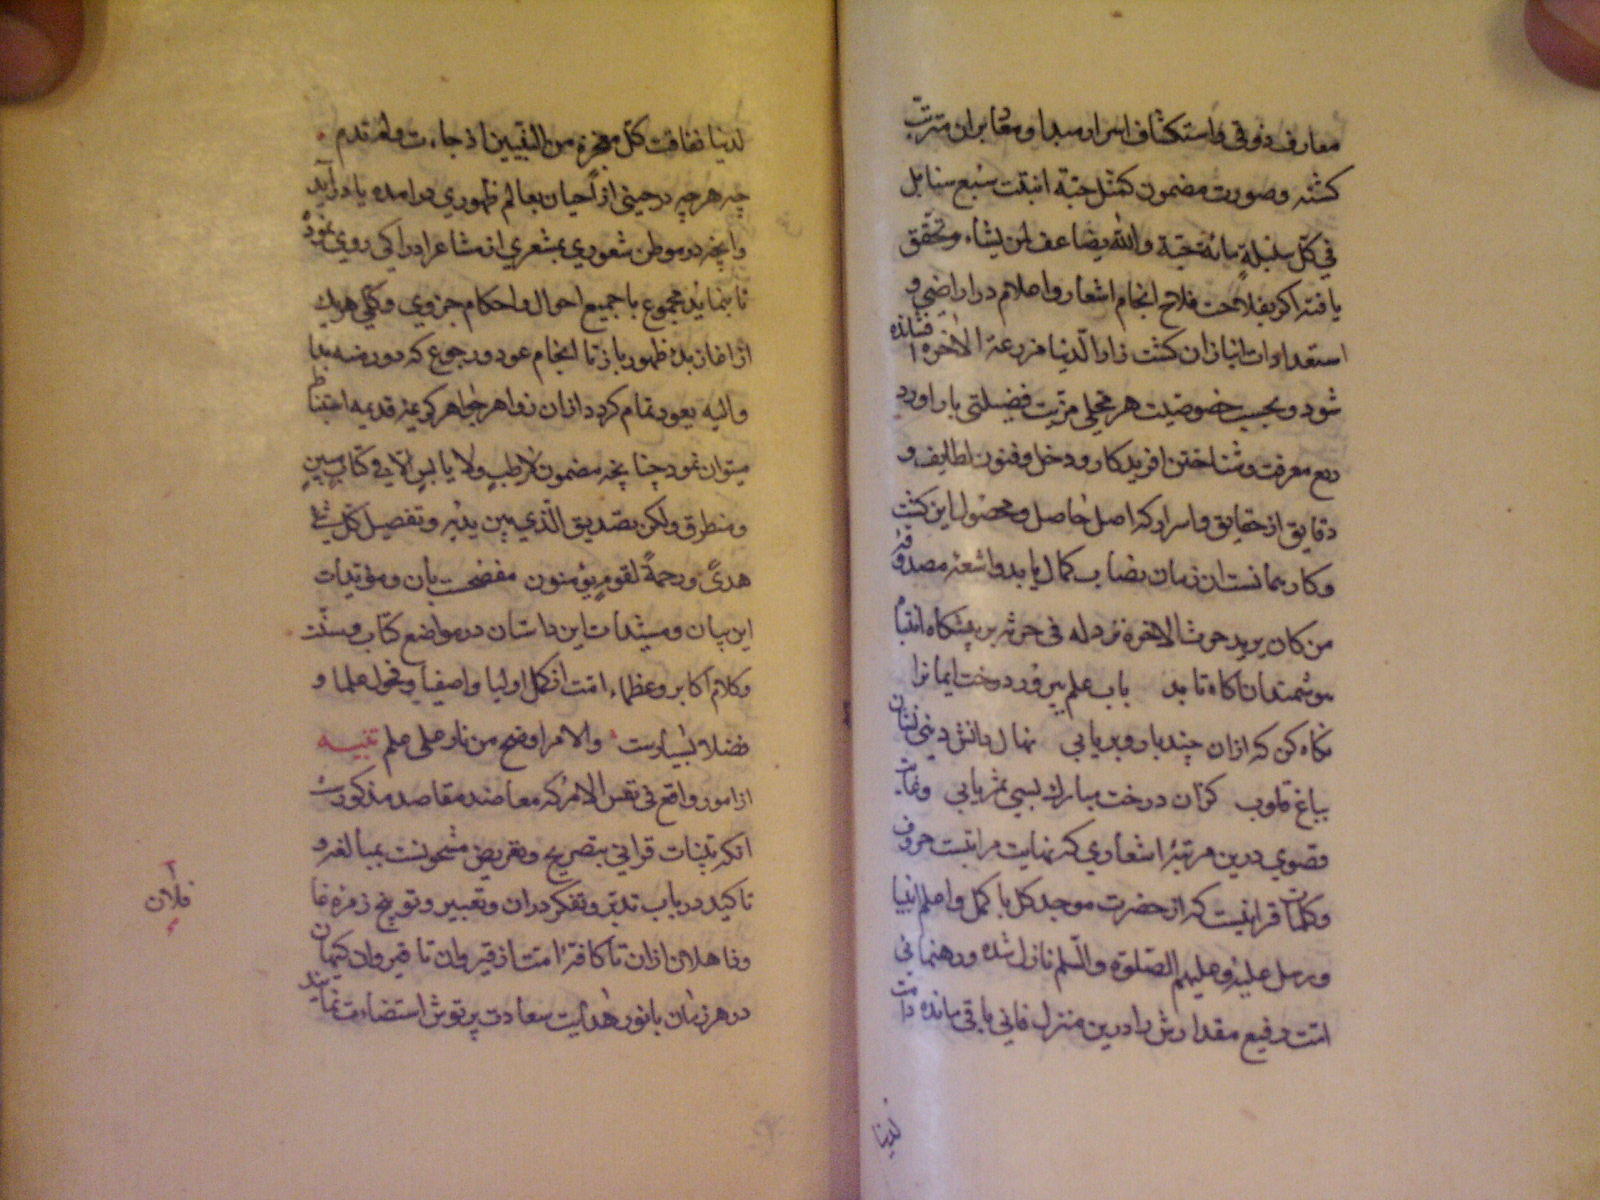 معارف ذوقی و استکشاف اسرار مبدا و معاد بران مترتب
کشته وصورت مضمون کمثل حبّة انبتت سبع سنابل
في کلّ سنبلةٍ مائة حبّة والله یضاعف لمن یشاء وتحقّق
یافته اکر بفلاحت فلاح انجام اشعار واعلام در اراضی و
استعدادات انبازان کشت زار الدّنیا مزرعة الاخرة افشانده
شود و بحسب خصوصیّت هر محلی مزیّت فضیلتی بار اورد
ریع معرفت وشناختن افریدکار ودخل وفنون لطایف و
دقایق از حقایق و اسرار که اصل حاصل ومحصول این کشت
وکار همانست ان زمان بضاب کمال یابد واشعهٔ مصدوقهٔ
من کان یرید حرث الاخرة نزد له فی حرثه بر پیشکاه انتباه
هوشمندان اکاه تابد باب علم بپرور درخت ایمانرا
نکاه کن که ازان چند بار وبر یابی نهال دانش دینی نشان
بباغ قلوب کزان درخت مبارك بسی ثمر یابی وغایت
قصوی درین مرتبهٔ اشعاری که نهایت مراتبست حروف
وکلمات قرانیست که از حضرت موجد کل با کمل واعلم انبیا
ورسل علیه وعلیهم الصّلوة والسّلم نازل شده ورهنمائی
امّت رفیع مقدارش را درین منزل فانی باقی مانده دامت
لدینا
لدینا ففاقت کلّ معجزة من النّبیین اذ جاءت ولم تدم
چه هرچه در حینی از احیان بعالم ظهوری درامده یا درآید
وانچه در موطن شعوری بمشعری از مشاعر ادراکی روی نموده
تا بنماید مجموع با جمیع احوال واحکام جزوی وکلّی هریك
از اغاز بدء ظهور باز تا انجام عود ورجوع که دور منه بدا
والیه یعود تمام کردد ازان زواهر جواهر کریمهٔ قدیمه استنباط
میتوان نمود چنانچه مضمون لا رطبٍ ولا یابسٍ الّا فی کتابٍ مبینٍ
ومنطوق ولکن تصدیق الّذی بین یدیه وتفصیل کلّ شیء
هدیً ورحمةً لقومٍ یؤمنون مفصحست بان ومؤیّدات
این بیان ومشیّدات این داستان در مواضع کتاب وسنّت
وکلام اکابر وعظماء امّت از کمل اولیا واصفیا وفحول علما و
فضلا بسیارست والامر اوضح من نار علی علم تنبیه
از امور واقع فی نفس الامر که معاضد مقاصد مذکورست
انکه بیّنات قرانی بتصریح وتعریض مشحونست بمبالغه و
تاکید در باب تدبّر وتفکر دران وتعییر وتوبیخ زمرهٔ غا
وغاهلان ازان تا کافهٔ امّت از قیروان تا قیروان کیهان
در هر زمان بانوار هدایت سعادت پرتوش استضاءت نمایند
فلان